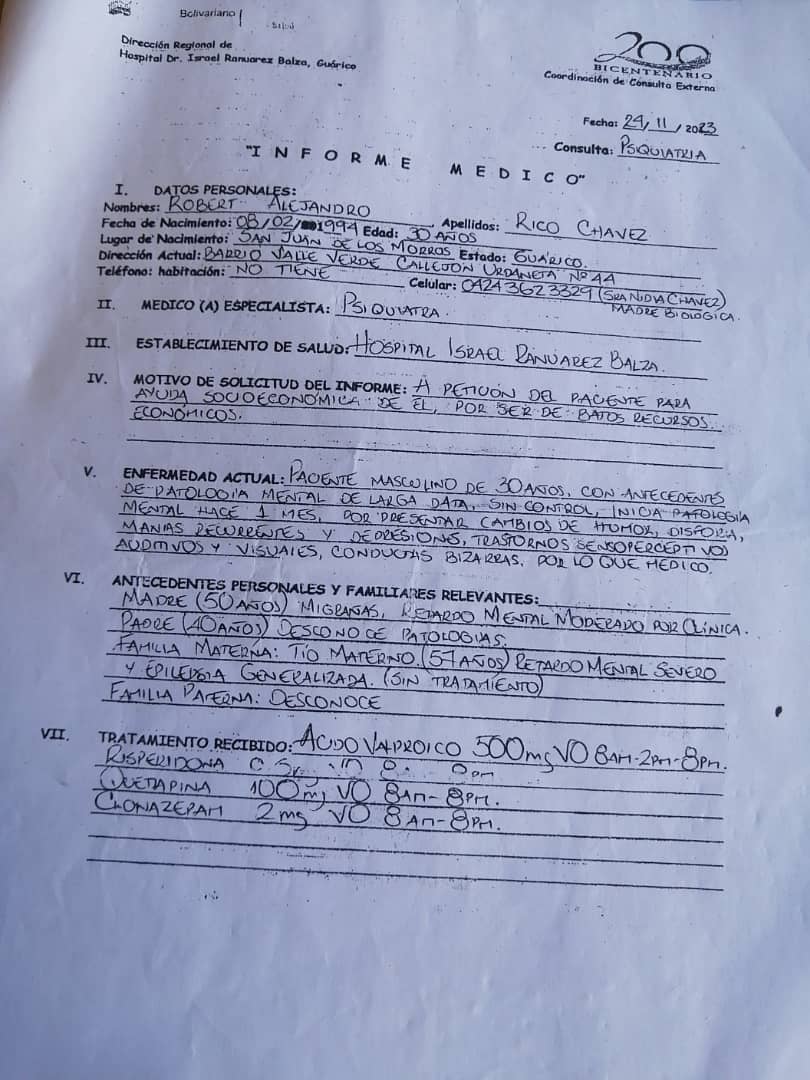 Bolivariano
Salud
Dirección Regional de
Hospital Dr. Israel Ranuarez Balza, Guárico
200
BICENTENARIO
Coordinación de Consulta Externa
Fecha: 24/11/2023
Consulta: PSIQUIATRIA
"INFORME MEDICO"
I. DATOS PERSONALES:
Nombres: ROBERT ALEJANDRO Apellidos: RICO CHAVEZ
Fecha de Nacimiento: 08/02/1994 Edad: 30 AÑOS
Lugar de Nacimiento: SAN JUAN DE LOS MORROS Estado: GUÁRICO.
Dirección Actual: BARRIO VALLE VERDE CALLEJON URDANETA Nº 44
Teléfono: habitación: NO TIENE Celular: 0424 3623329 (SRA NIDIA CHAVEZ)
MADRE BIOLOGICA.
II. MEDICO (A) ESPECIALISTA: PSIQUIATRA.
III. ESTABLECIMIENTO DE SALUD: HOSPITAL ISRAEL RANUAREZ BALZA.
IV. MOTIVO DE SOLICITUD DEL INFORME: A PETICION DEL PACIENTE PARA
AYUDA SOCIOECONOMICA DE EL, POR SER DE BAJOS RECURSOS
ECONOMICOS.
V. ENFERMEDAD ACTUAL: PACIENTE MASCULINO DE 30 AÑOS, CON ANTECEDENTES
DE PATOLOGIA MENTAL DE LARGA DATA, SIN CONTROL, INICIA PATOLOGIA
MENTAL HACE 1 MES, POR PRESENTAR CAMBIOS DE HUMOR, DISFORIA,
MANIAS RECURRENTES Y DEPRESIONES, TRASTORNOS SENSOPERCEPTIVOS
AUDITIVOS Y VISUALES, CONDUCTAS BIZARRAS, POR LO QUE MEDICO.
VI. ANTECEDENTES PERSONALES Y FAMILIARES RELEVANTES:
MADRE (50 AÑOS) MIGRAÑAS, RETARDO MENTAL MODERADO POR CLÍNICA.
PADRE (40 AÑOS) DESCONOCE PATOLOGIAS.
FAMILIA MATERNA: TIO MATERNO (57 AÑOS) RETARDO MENTAL SEVERO
Y EPILEPSIA GENERALIZADA. (SIN TRATAMIENTO)
FAMILIA PATERNA: DESCONOCE
VII. TRATAMIENTO RECIBIDO: ACIDO VALPROICO 500mg VO 8AM-2PM-8PM.
RISPERIDONA
QUETAPINA 100mg VO 8AM-8PM.
CLONAZEPAM 2mg VO 8AM-8PM.